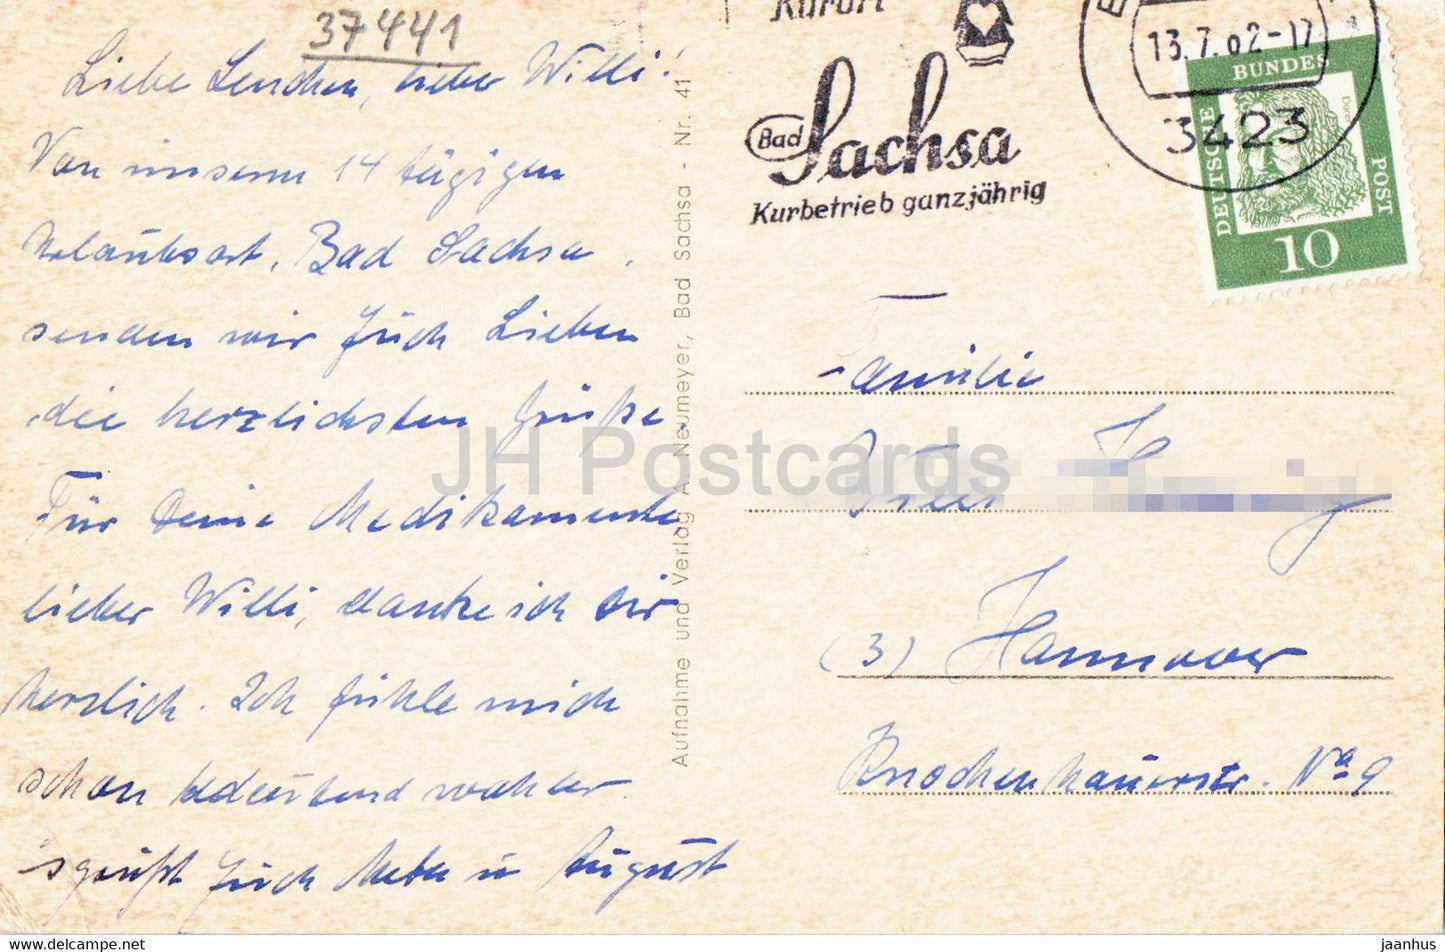 37441
Liebe Lenchen, lieber Willi!
Von unserm 14 tägigen
Urlaubsort, Bad Sachsa,
senden wir Euch Lieben
die herzlichsten Grüße
Für Deine Medikamente
lieber Willi, danke ich Dir
herzlich. Ich fühle mich
schon bedeutend wohler.
Es grüßt Euch Meta u August
Aufnahme und Verlag A. Neumeyer, Bad Sachsa - Nr. 41
Kurort
Bad Sachsa
Kurbetrieb ganzjährig
13.7.62-17
3423
DEUTSCHE
BUNDES
POST
10
Familie
Willi
(3) Hannover
Knochenhauerstr. No 9
JH Postcards
https://www.delcampe.net
jaanhus